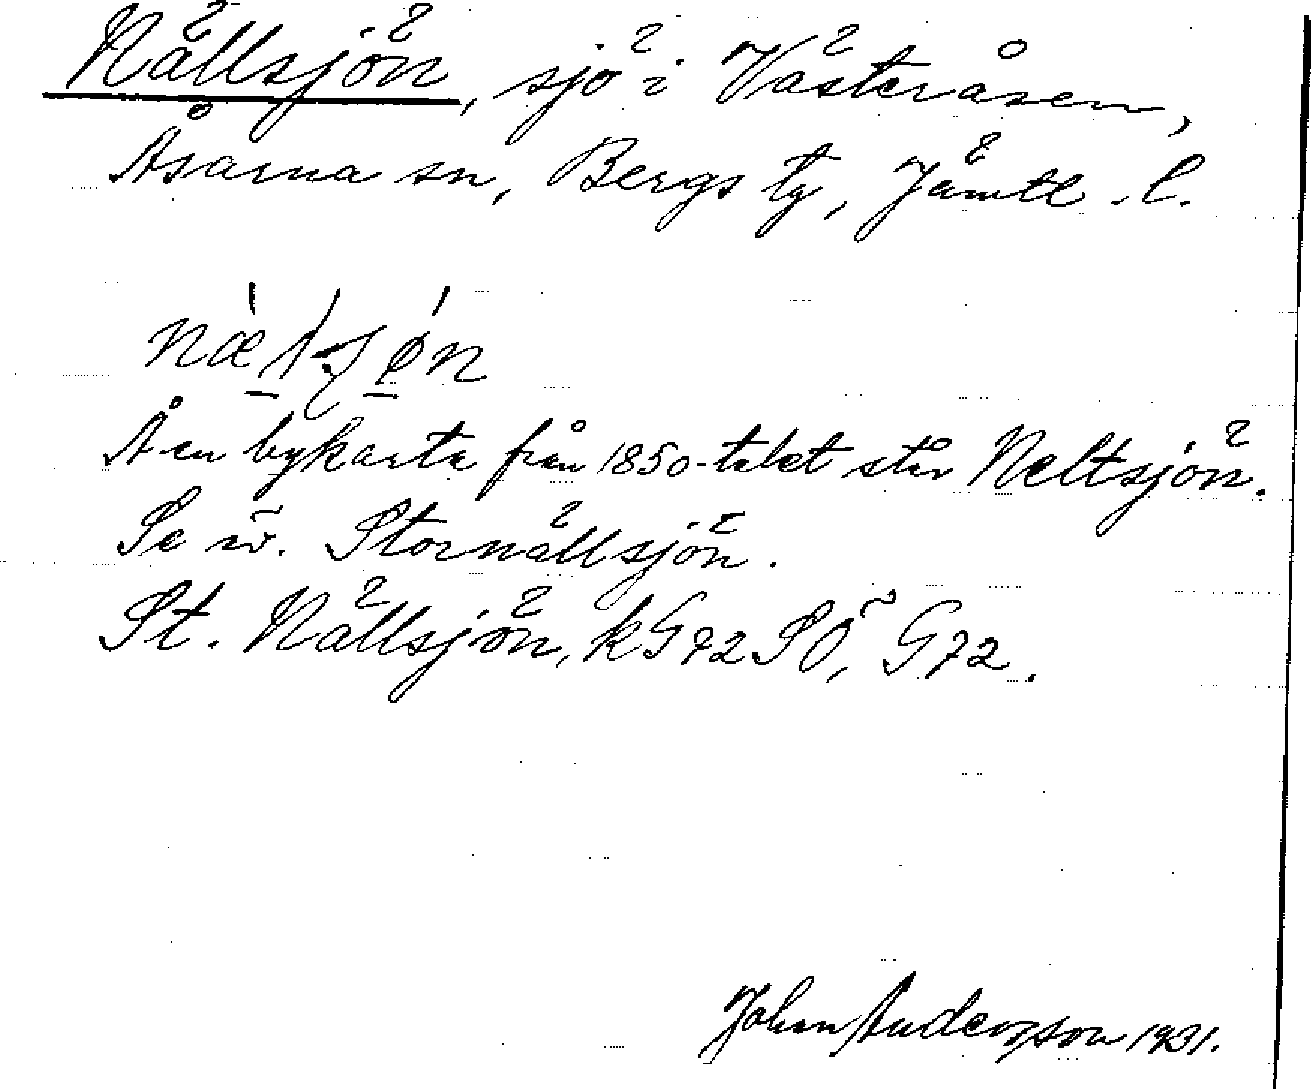 Nällsjön, sjö i Västeråsen,
Åsarna sn, Bergs tg, Jämtl. l.
Å en bykarta från 1850-talet står Neltsjön.
Se äv. Stornällsjön.
St. Nällsjön, kG72SÖ, G72.
John Andersson 1931.